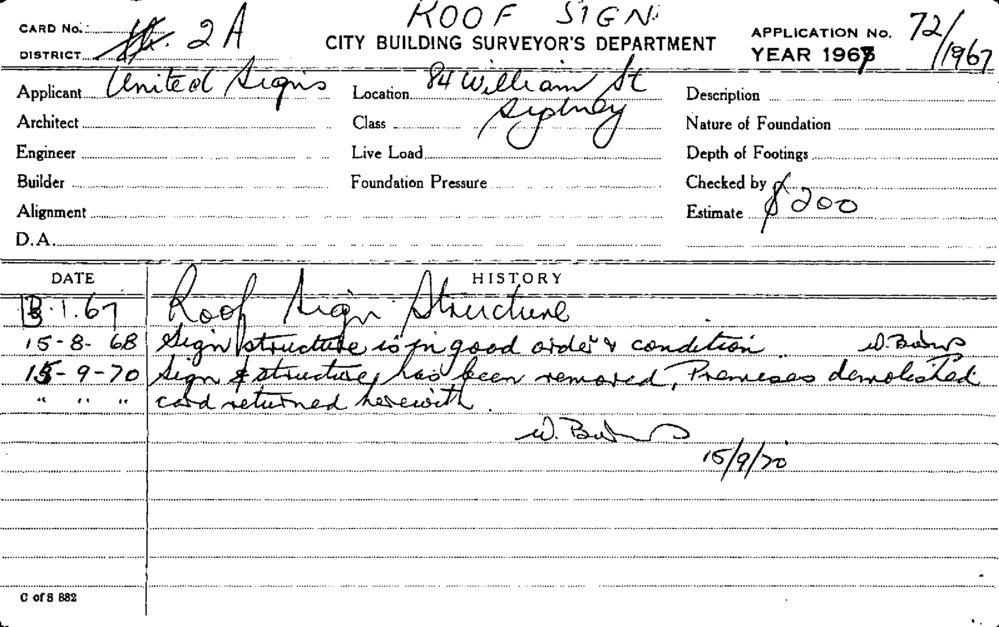 ROOF SIGN
CARD No. 2A
CITY BUILDING SURVEYOR'S DEPARTMENT
APPLICATION No. 72/1967
DISTRICT
YEAR 1967
Applicant United Signs
Location 84 William St Sydney
Description
Architect
Class
Nature of Foundation
Engineer
Live Load
Depth of Footings
Builder
Foundation Pressure
Checked by
Alignment
Estimate $200
D.A.
DATE HISTORY
3.1.67 Roof Sign Structure
15-8-68 Sign structure is in good order & condition W.
15-9-70 Sign & structure, has been removed, Premises demolished
" " " card returned herewith.
W.
15/9/70
C of S 882